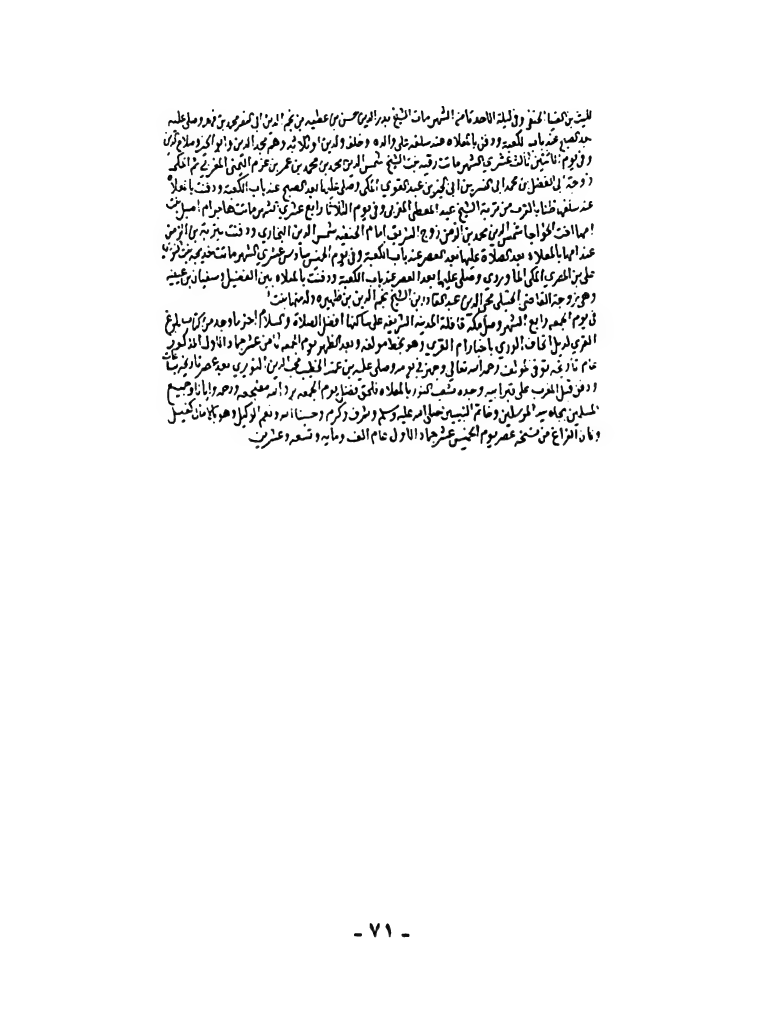 وفي ليلة الاحد ثامن الشهر مات الشيخ بدر الدين حسن بن عطيه بن نجم الدين محمد بن فهد وصلي عليه
بعد الصبح عند باب الكعبة ودفن بالمعلاه عند سلفه على والده وخلف ولدين
وفي يوم الاثنين ثالث عشري الشهر ماتت رقيه بنت الشيخ شمس الدين محمد بن محمد بن عمر بن عزم التميمي المغربي ثم المكي
زوجة ابي الفضل بن محمد ابي الخير بن ابي اليمن بن عبد القوي المكي وصلي عليها بعد الصبح عند باب الكعبة ودفنت بالمعلاه
عند سلفها بالقرب من تربة الشيخ عبد المعطي المغربي وفي يوم الثلاثا رابع عشري الشهر ماتت
محمد بن الزمن زوج الشريف امام الحنفيه شمس الدين البخاري ودفنت بتربة بن الزمن
عند امها بالمعلاه بعد الصلاة عليها بعد العصر عند باب الكعبة وفي يوم الخميس سادس عشري الشهر ماتت خديجه بنت
علي بن المصري المكي الماوردي وصلي عليها بعد العصر عند باب الكعبة ودفنت بالمعلاه بين الفضيل وسفيان بن عيينه
وهي زوجة القاضي الحنبلي محي الدين عبد القادر بن الشيخ نجم الدين بن ظهيره وله منها بنت
في يوم الجمعه رابع الشهر وصل مكة قافلة المدينه الشريفه على ساكنها افضل الصلاة والسلام اخر ما وجد من كتاب بلوغ
القري لذيل اتحاف الوري باخبار ام القري وهو بخط مولفه وبعد الظهر يوم الجمعه ثامن عشر جماد الاول المذكور
عام تاريخه توفي المولف رحمه الله تعالى وجهز في يومه وصلي عليه بن عمته الخطيب محب الدين النويري بعد عصر تاريخه
ودفن قبل المغرب على قبر ابيه وجده بشعب النور بالمعلاه يوم الجمعه برد الله مضجعه ورحمه وايانا وجميع
المسلمين بجاه سيد المرسلين وخاتم النبيين صلى الله عليه وسلم وشرف وكرم وحسبنا الله ونعم الوكيل
وكان الفراغ من نسخه عصر يوم الخميس عشر جماد الاول عام الف ومايه وتسعه وعشرين
- ٧١ -